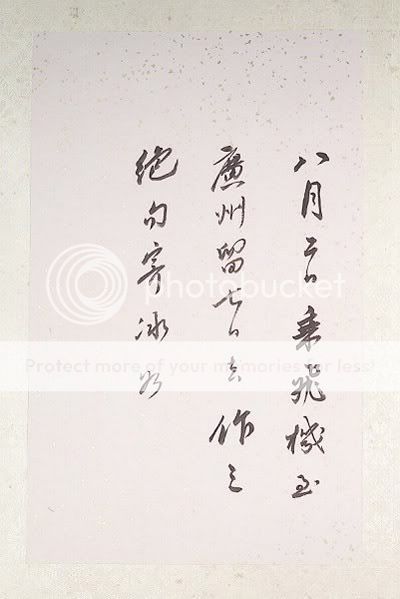 八月二日乘飛機至
廣州留七日去作三
絕句寄冰如
photobucket
Protect more of your memories for less!